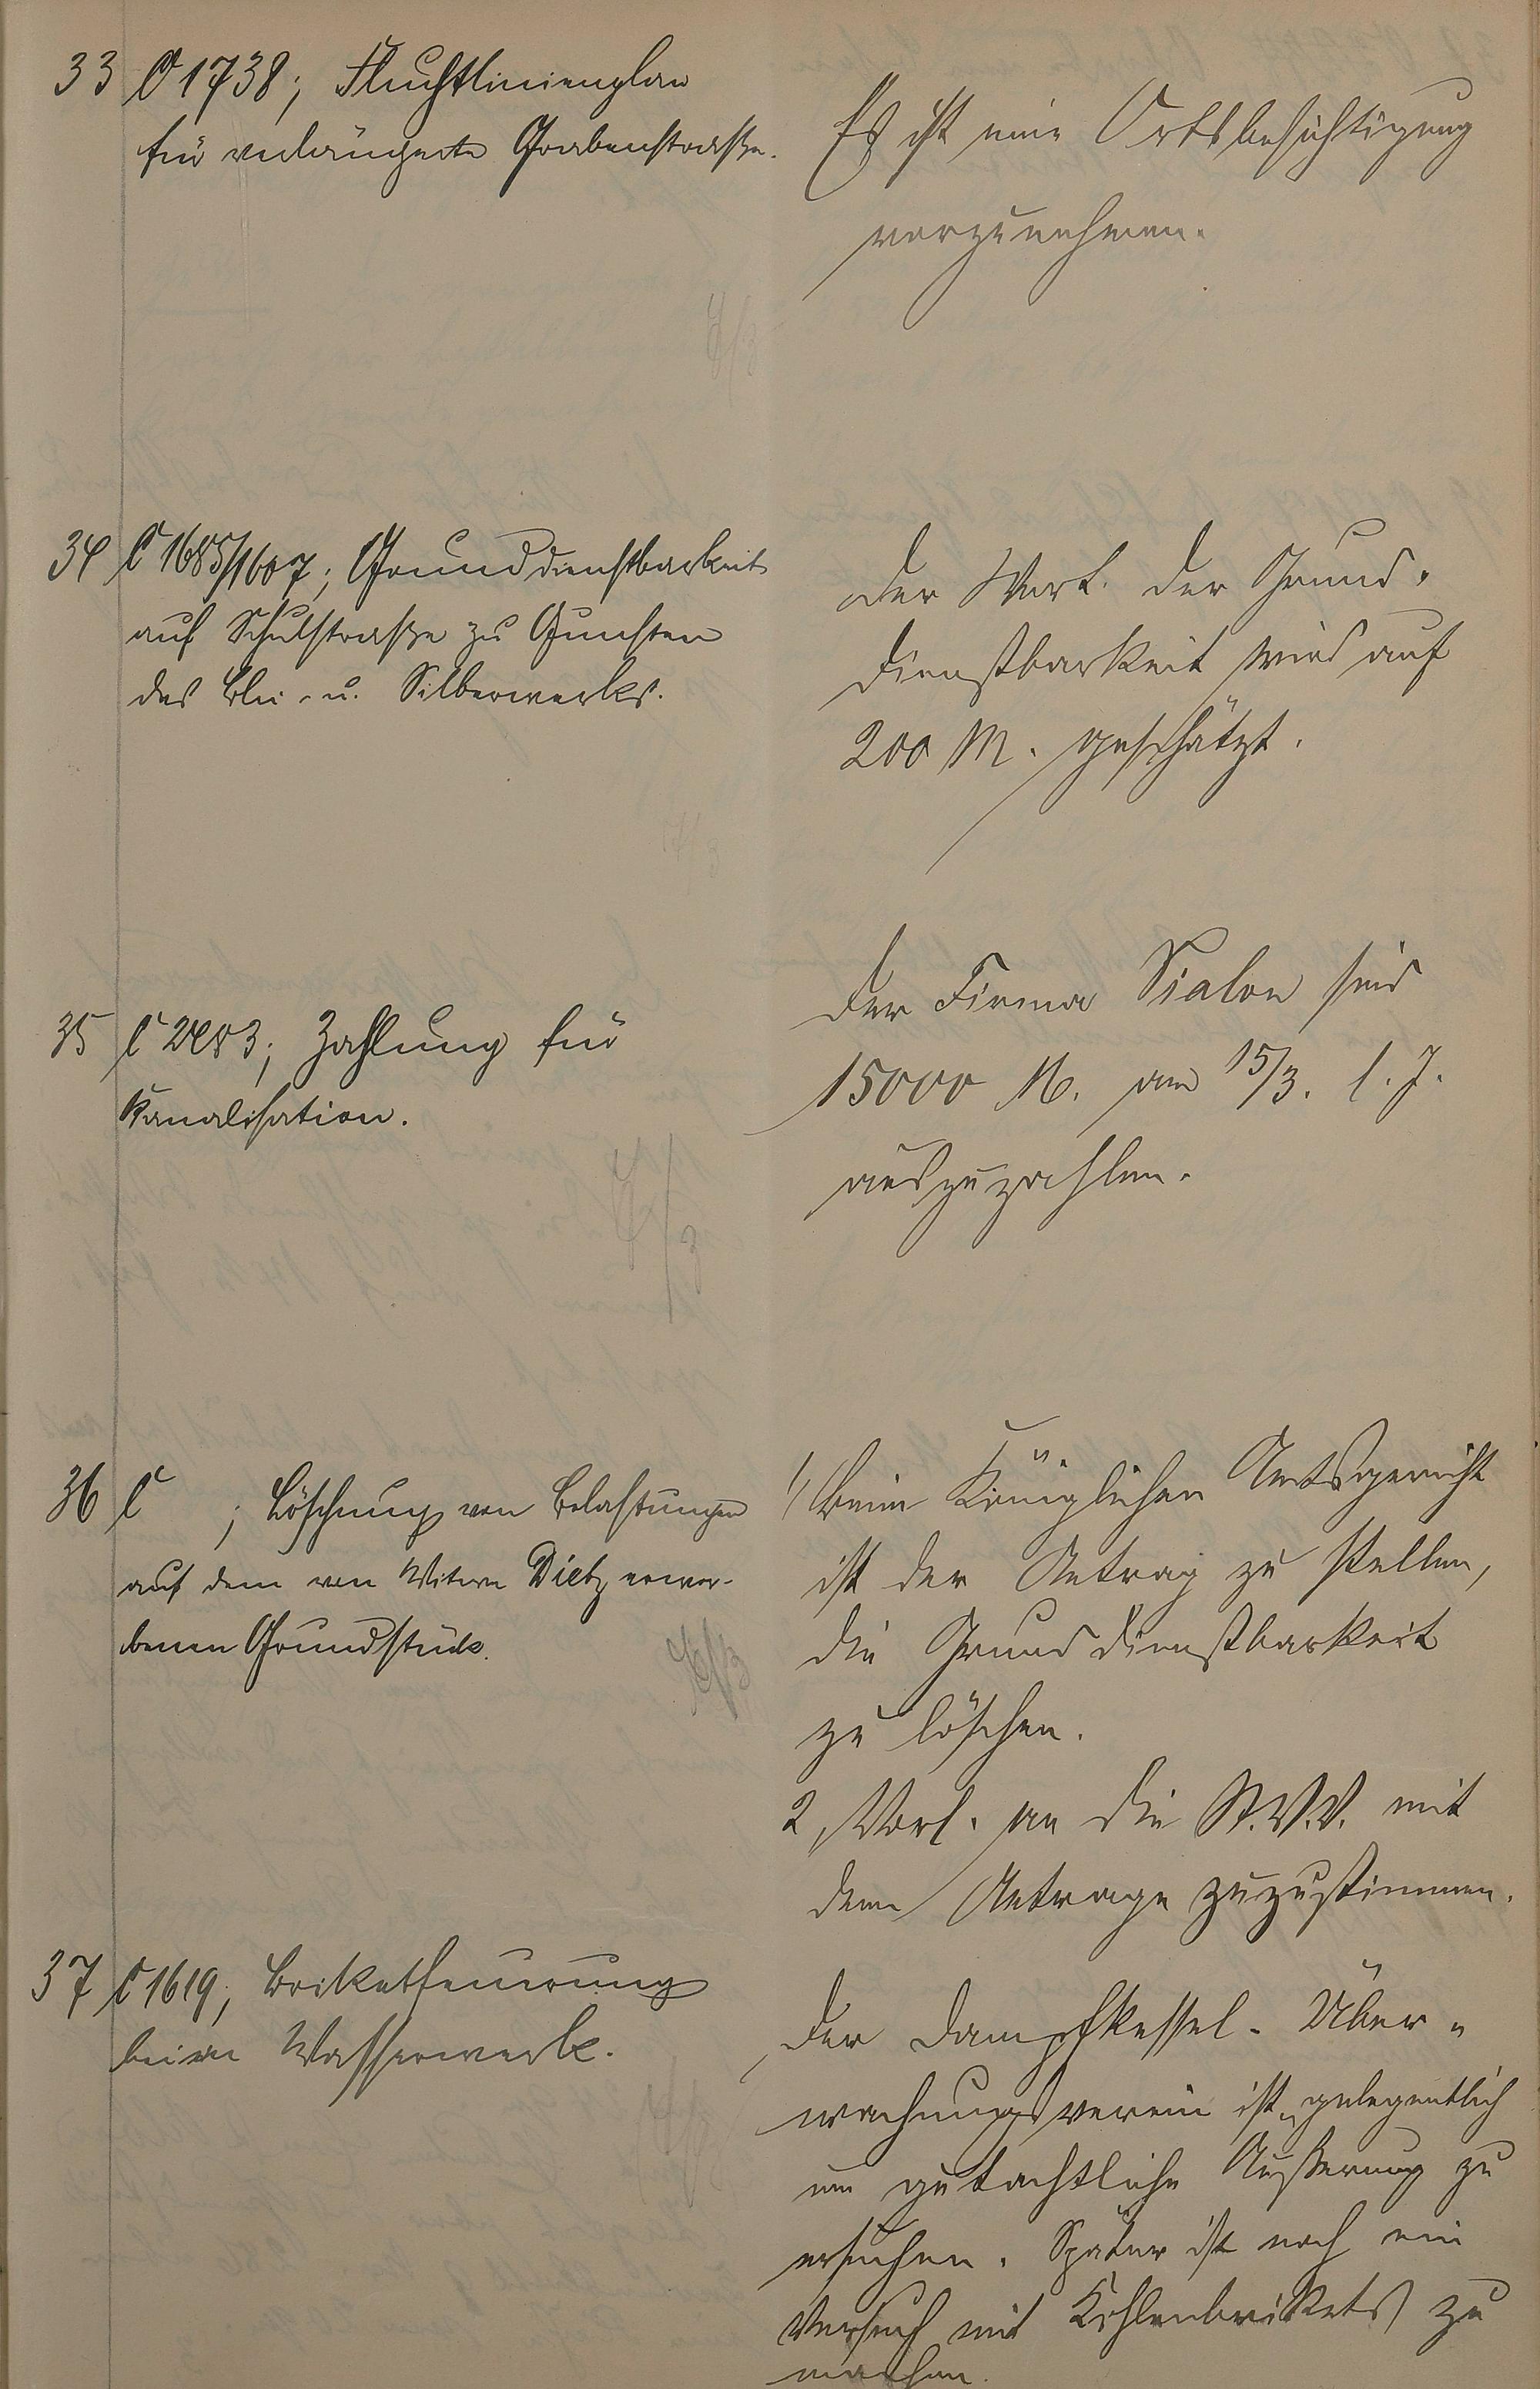 33 C 1738; Fluchtlinienplan
für verlängerte Grabenstraße.
Es ist eine Ortsbesichtigung
vorzunehmen.
34 C 1685/1607; Grunddienstbarkeit
auf Schulstraße zu Gunsten
des Blei- u. Silberwerks.
Der Wert der Grund-
dienstbarkeit wird auf
200 M. geschätzt.
35 C 2183; Zahlung für
Kanalisation.
Der Firma Sialon sind
15000 M. am 15/3. l. J.
auszuzahlen.
36 C ; Löschung von Belastungen
auf dem von Witwe Dietz erwor-
benen Grundstück.
1/ Beim Königlichen Amtsgericht
ist der Antrag zu stellen,
die Grunddienstbarkeit
zu löschen.
2, Vorl. an die St.V.V. mit
dem Antrage zuzustimmen.
37 C 1619; Briketfeuerung
beim Wasserwerk.
Der Dampfkessel-Über-
wachungsverein ist gelegentlich
um gutachtliche Äußerung zu
ersuchen. Später ist noch ein
Versuch mit Kohlenbrikets zu
machen.